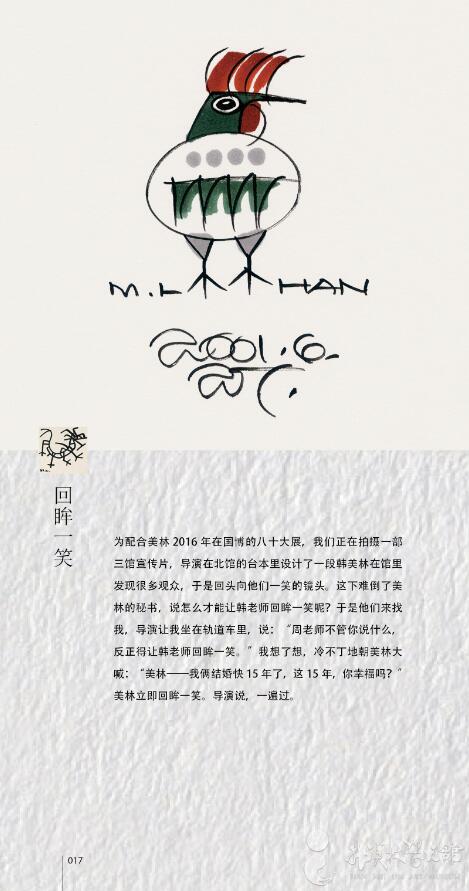 M.L HAN
2001.6.
回眸一笑
为配合美林 2016 年在国博的八十大展，我们正在拍摄一部
三馆宣传片，导演在北馆的台本里设计了一段韩美林在馆里
发现很多观众，于是回头向他们一笑的镜头。这下难倒了美
林的秘书，说怎么才能让韩老师回眸一笑呢？于是他们来找
我，导演让我坐在轨道车里，说：“周老师不管你说什么，
反正得让韩老师回眸一笑。”我想了想，冷不丁地朝美林大
喊：“美林——我俩结婚快 15 年了，这 15 年，你幸福吗？”
美林立即回眸一笑。导演说，一遍过。
017
韩美林艺术馆
HAN MEI LIN ART MUSEUM